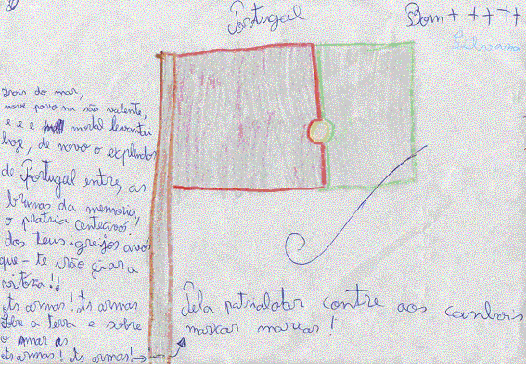 Portugal
Bom + + + - +
Silvana
rois do mar,
nove povo na são valente,
e e e mortal levantai
hoje, de novo o esplendor
de Portugal entre, as
brumas da memoria,
o patria
dos teus egrejos avós
que - te
vitoza!!
Às armas! Às armas
Sobe a terra e sobre
o mar as
às armas! Às armas!
Pela patria lotar contre aos canhois
marxar marxas!